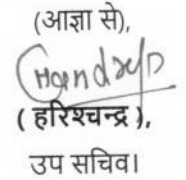 (आज्ञा से),
( हरिश्चन्द्र ),
उप सचिव।